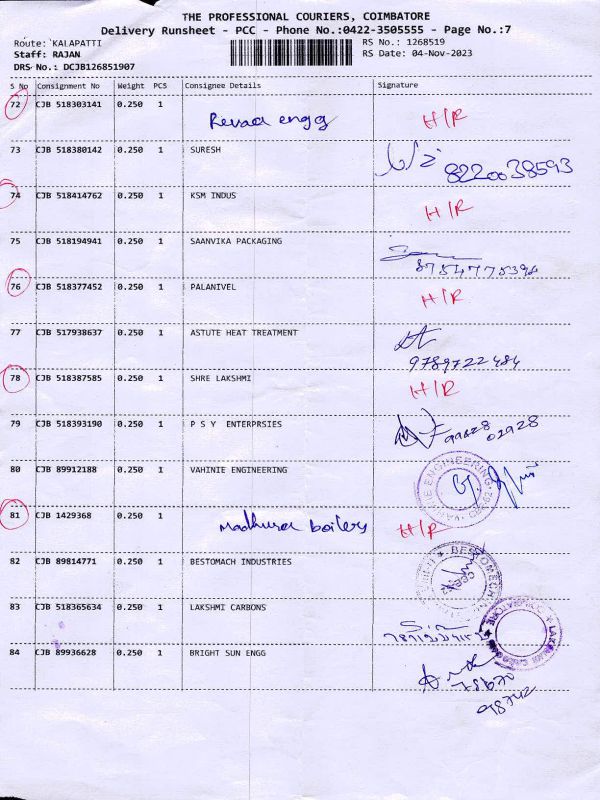 THE PROFESSIONAL COURIERS, COIMBATORE
Delivery Runsheet - PCC - Phone No.:0422-3505555 - Page No.:7
Route: KALAPATTI RS No.: 1268519
Staff: RAJAN RS Date: 04-Nov-2023
DRS No.: DCJB126851907
S No Consignment No Weight PCS Consignee Details Signature
72 CJB 518303141 0.250 1 H/R
engg
73 CJB 518380142 0.250 1 SURESH
8220038593
74 CJB 518414762 0.250 1 KSM INDUS
H/R
75 CJB 518194941 0.250 1 SAANVIKA PACKAGING
8754775394
76 CJB 518377452 0.250 1 PALANIVEL
H/R
77 CJB 517938637 0.250 1 ASTUTE HEAT TREATMENT
9789722484
78 CJB 518387585 0.250 1 SHRE LAKSHMI
H/R
79 CJB 518393190 0.250 1 P S Y ENTERPRSIES
80 CJB 89912188 0.250 1 VAHINIE ENGINEERING
81 CJB 1429368 0.250 1
Madhura boilers H/R
82 CJB 89814771 0.250 1 BESTOMACH INDUSTRIES
83 CJB 518365634 0.250 1 LAKSHMI CARBONS
84 CJB 89936628 0.250 1 BRIGHT SUN ENGG
78670
98742